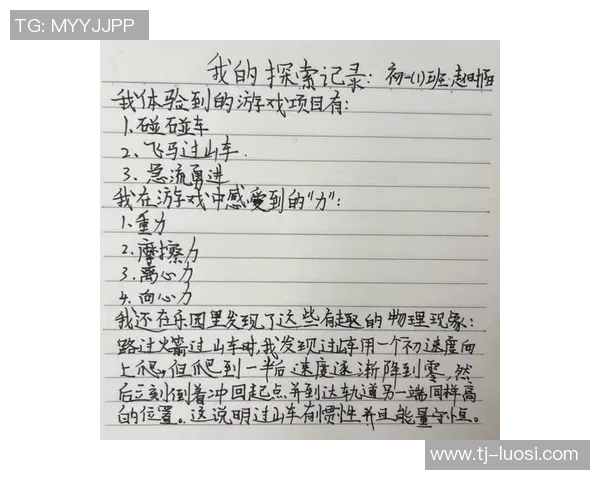 TG: MYYJJPP
我的探索记录: 初一(1)班
我体验到的游戏项目有:
1、碰碰车
2、飞马过山车.
3、急流勇进
我在游戏中感受到的"力":
1、重力
2、摩擦力
3、离心力
4、向心力
我还在乐园里发现了这些有趣的物理现象:
路过火箭过山车时,我发现过山车用一个初速度向
上爬,但爬到一半后速度逐渐降到零,然
后立刻倒着冲回起点并到达轨道另一端同样高
的位置。这说明过山车有惯性并且能量守恒。
www.tj-luosi.com